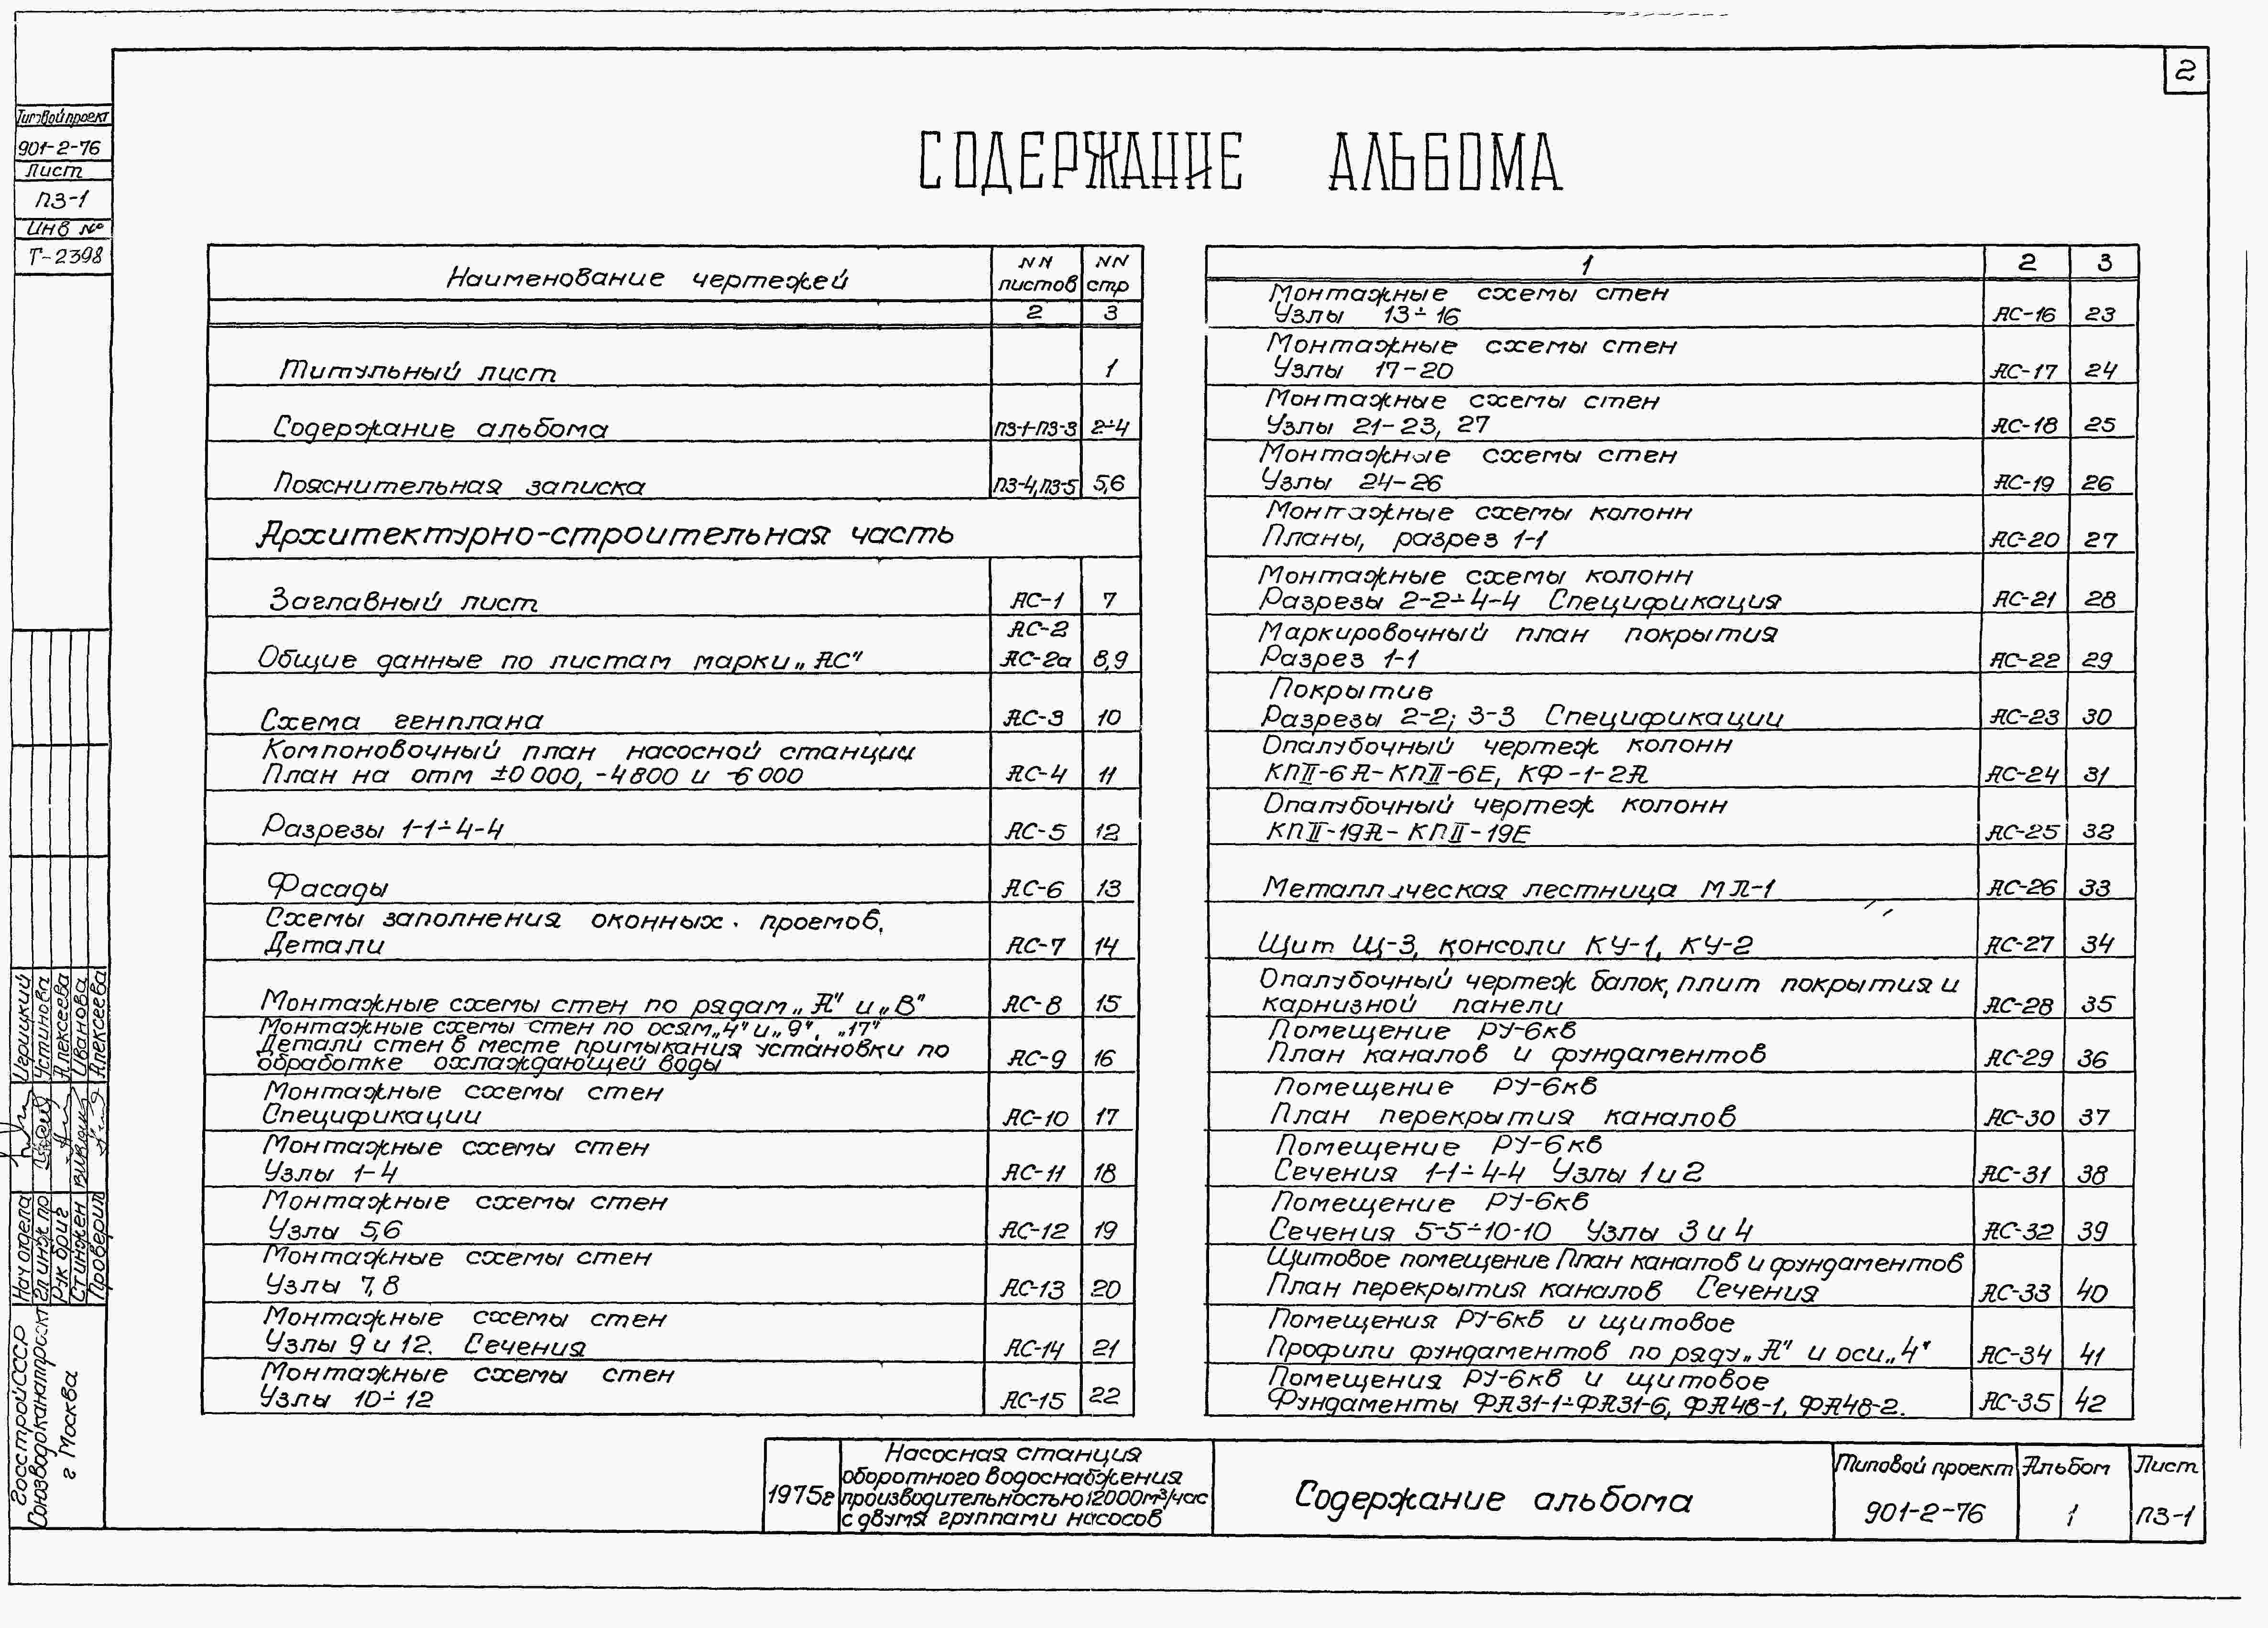 2
Типовой проект
901-2-76
Лист
ПЗ-1
Инв №
Т-2398
СОДЕРЖАНИЕ АЛЬБОМА
Наименование чертежей
NN листов
NN стр
2 3
Титульный лист 1
Содержание альбома ПЗ-1-ПЗ-3 2÷4
Пояснительная записка ПЗ-4,ПЗ-5 5,6
Архитектурно-строительная часть
Заглавный лист АС-1 7
АС-2
Общие данные по листам марки „АС" АС-2а 8,9
Схема генплана АС-3 10
Компоновочный план насосной станции
План на отм ±0 000, -4 800 и -6 000 АС-4 11
Разрезы 1-1÷4-4 АС-5 12
Фасады АС-6 13
Схемы заполнения оконных проемов.
Детали АС-7 14
Монтажные схемы стен по рядам „А" и „В" АС-8 15
Монтажные схемы стен по осям „4" и „9", „17"
Детали стен в месте примыкания установки по
обработке охлаждающей воды АС-9 16
Монтажные схемы стен
Спецификации АС-10 17
Монтажные схемы стен
Узлы 1-4 АС-11 18
Монтажные схемы стен
Узлы 5,6 АС-12 19
Монтажные схемы стен
Узлы 7,8 АС-13 20
Монтажные схемы стен
Узлы 9 и 12. Сечения АС-14 21
Монтажные схемы стен
Узлы 10÷12 АС-15 22
1 2 3
Монтажные схемы стен
Узлы 13÷16 АС-16 23
Монтажные схемы стен
Узлы 17-20 АС-17 24
Монтажные схемы стен
Узлы 21-23, 27 АС-18 25
Монтажные схемы стен
Узлы 24-26 АС-19 26
Монтажные схемы колонн
Планы, разрез 1-1 АС-20 27
Монтажные схемы колонн
Разрезы 2-2÷4-4 Спецификация АС-21 28
Маркировочный план покрытия
Разрез 1-1 АС-22 29
Покрытие
Разрезы 2-2; 3-3 Спецификации АС-23 30
Опалубочный чертеж колонн
КПII-6А-КПII-6Е, КФ-1-2А АС-24 31
Опалубочный чертеж колонн
КПII-19А-КПII-19Е АС-25 32
Металлическая лестница МЛ-1 АС-26 33
Щит Щ-3, консоли КУ-1, КУ-2 АС-27 34
Опалубочный чертеж балок, плит покрытия и
карнизной панели АС-28 35
Помещение РУ-6кв
План каналов и фундаментов АС-29 36
Помещение РУ-6кв
План перекрытия каналов АС-30 37
Помещение РУ-6кв
Сечения 1-1÷4-4 Узлы 1 и 2 АС-31 38
Помещение РУ-6кв
Сечения 5-5÷10-10 Узлы 3 и 4 АС-32 39
Щитовое помещение План каналов и фундаментов
План перекрытия каналов Сечения АС-33 40
Помещения РУ-6кв и щитовое
Профили фундаментов по ряду „А" и оси „4" АС-34 41
Помещения РУ-6кв и щитовое
Фундаменты ФА31-1÷ФА31-6, ФА48-1, ФА48-2. АС-35 42
Госстрой СССР
Союзводоканалпроект
г Москва
Нач отдела
Гл инж пр Устинова
Рук бриг Алексеева
Ст инжен Иванова
Проверил Алексеева
1975г
Насосная станция
оборотного водоснабжения
производительностью 12000м³/час
с двумя группами насосов
Содержание альбома
Типовой проект
901-2-76
Альбом
1
Лист
ПЗ-1